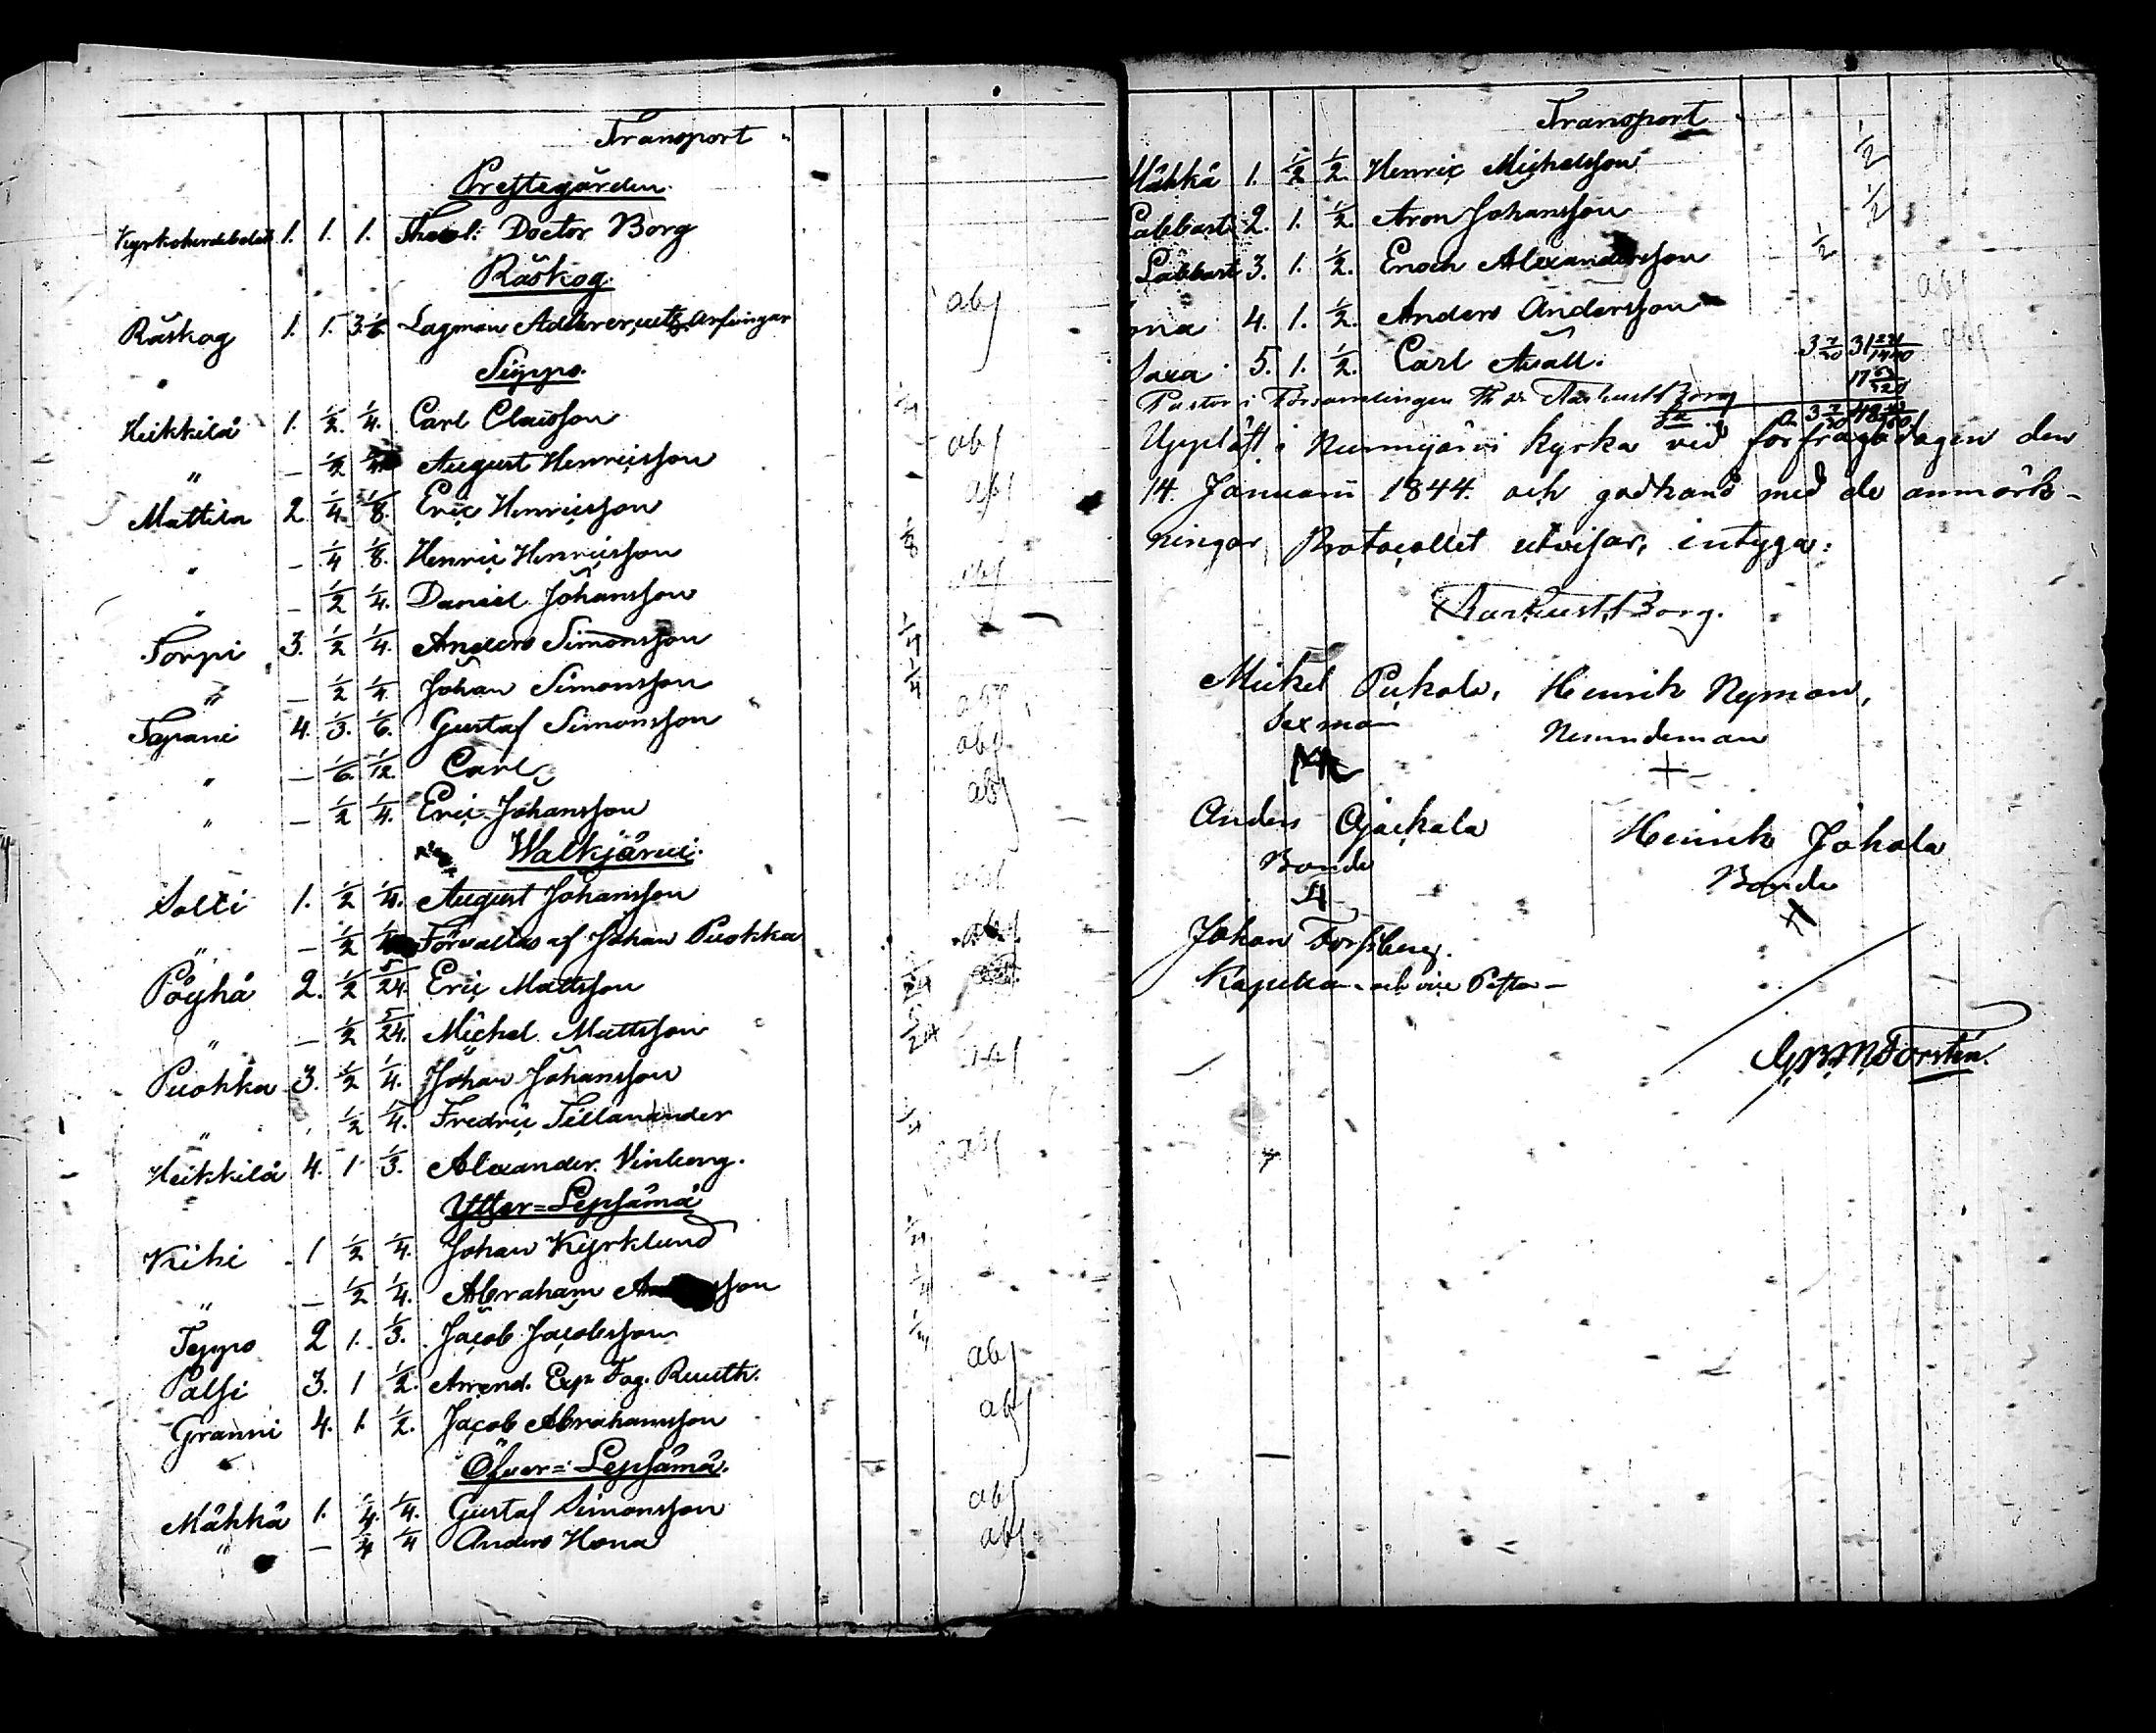 Transport
Prestegården.
Kyrkoherdebolet 1. 1. 1. Theol: Doctor Borg
Råskog.
Råskog 1. 1. 3 1/6 Lagman Adlercreutz Arfvingar abf
Siippo.
Heikkilä 1. 1/2. 1/4. Carl Claesson 1/4
" — 1/2 August Henricsson abf
Mattila 2. 1/4. 1/8. Eric Henricsson abf
" — 1/4 1/8. Henric Henricsson 1/8
" — 1/2 1/4. Daniel Johansson abf
Torpi 3. 1/2 1/4. Anders Simonsson 1/4
" — 1/2 1/4. Johan Simonsson 1/4
Tapani 4. 1/3. 1/6. Gustaf Simonsson abf
" — 1/6. 1/12. Carl abf
" — 1/2 1/4. Eric Johansson abf
Walkjärwi.
Solti 1. 1/2 1/4. August Johansson
" — 1/2 Förvaltas af Johan Puokka abf
Pöyhä 2. 1/2 5/24. Eric Mattsson 5/24
" — 1/2 5/24. Michel Mattsson 5/24
Puokka 3. 1/2 1/4. Johan Johansson abf
" 1/2 1/4. Fredric Tillanander 1/4
Heikkilä 4. 1 1/3. Alexander Vinberg. abf
Ytter=Lepsämä
Kihi 1 1/2 1/4. Johan Kyrklund 1/4
" — 1/2 1/4. Abraham 1/4
Teppo 2 1. 1/3. Jacob Jacobsson 1/3
Palsi 3. 1 1/2. Arrend. Exp. Fog. Ruuth. abf
Granni 4. 1. 1/2. Jacob Abrahamsson abf
Öfver=Lepsämä.
Mähkä 1. 1/4. 1/4. Gustaf Simonsson abf
" — 1/4 1/4 Anders Hona abf
Transport
Mähkä 1. 1/2 1/2. Henric Michelsson 1/2
Labbart 2. 1. 1/2. Aron Johansson 1/2
Labbart 3. 1. 1/2. Enoch Alexandersson 1/2
ona 4. 1. 1/2. Anders Andersson abf
Saxa 5. 1. 1/2. Carl Avall. 3 7/20 abf
Pastor i Församlingen
Uppläst i Nurmijärvi kyrka vid förfrågodagen den
14. Januarii 1844. och godkänd med de anmärk-
ningar, Protocollet utvisar, intyga:
Borg.
Mickel Pukala, Henrik Nyman,
Sexman Nemndeman
Anders Ojackala Henrik Jokala
Bonde Bonde
Johan Forssberg.
Kapellan och vice Pastor
Forstén.